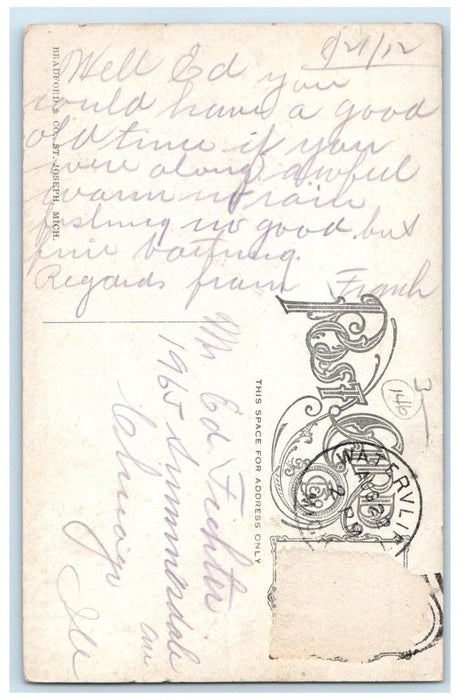 8/21/12
Well Ed you
could have a good
old time if you
were along awful
warm + rain
fishing no good but
fine bathing.
Regards from Frank
BRADFORD & CO., ST. JOSEPH, MICH.
Post Card
THIS SPACE FOR ADDRESS ONLY
Mr Ed. Fichter
1965 Summerdale
ave
Chicago
Ill
146
3
WATERVLIET
2 PM